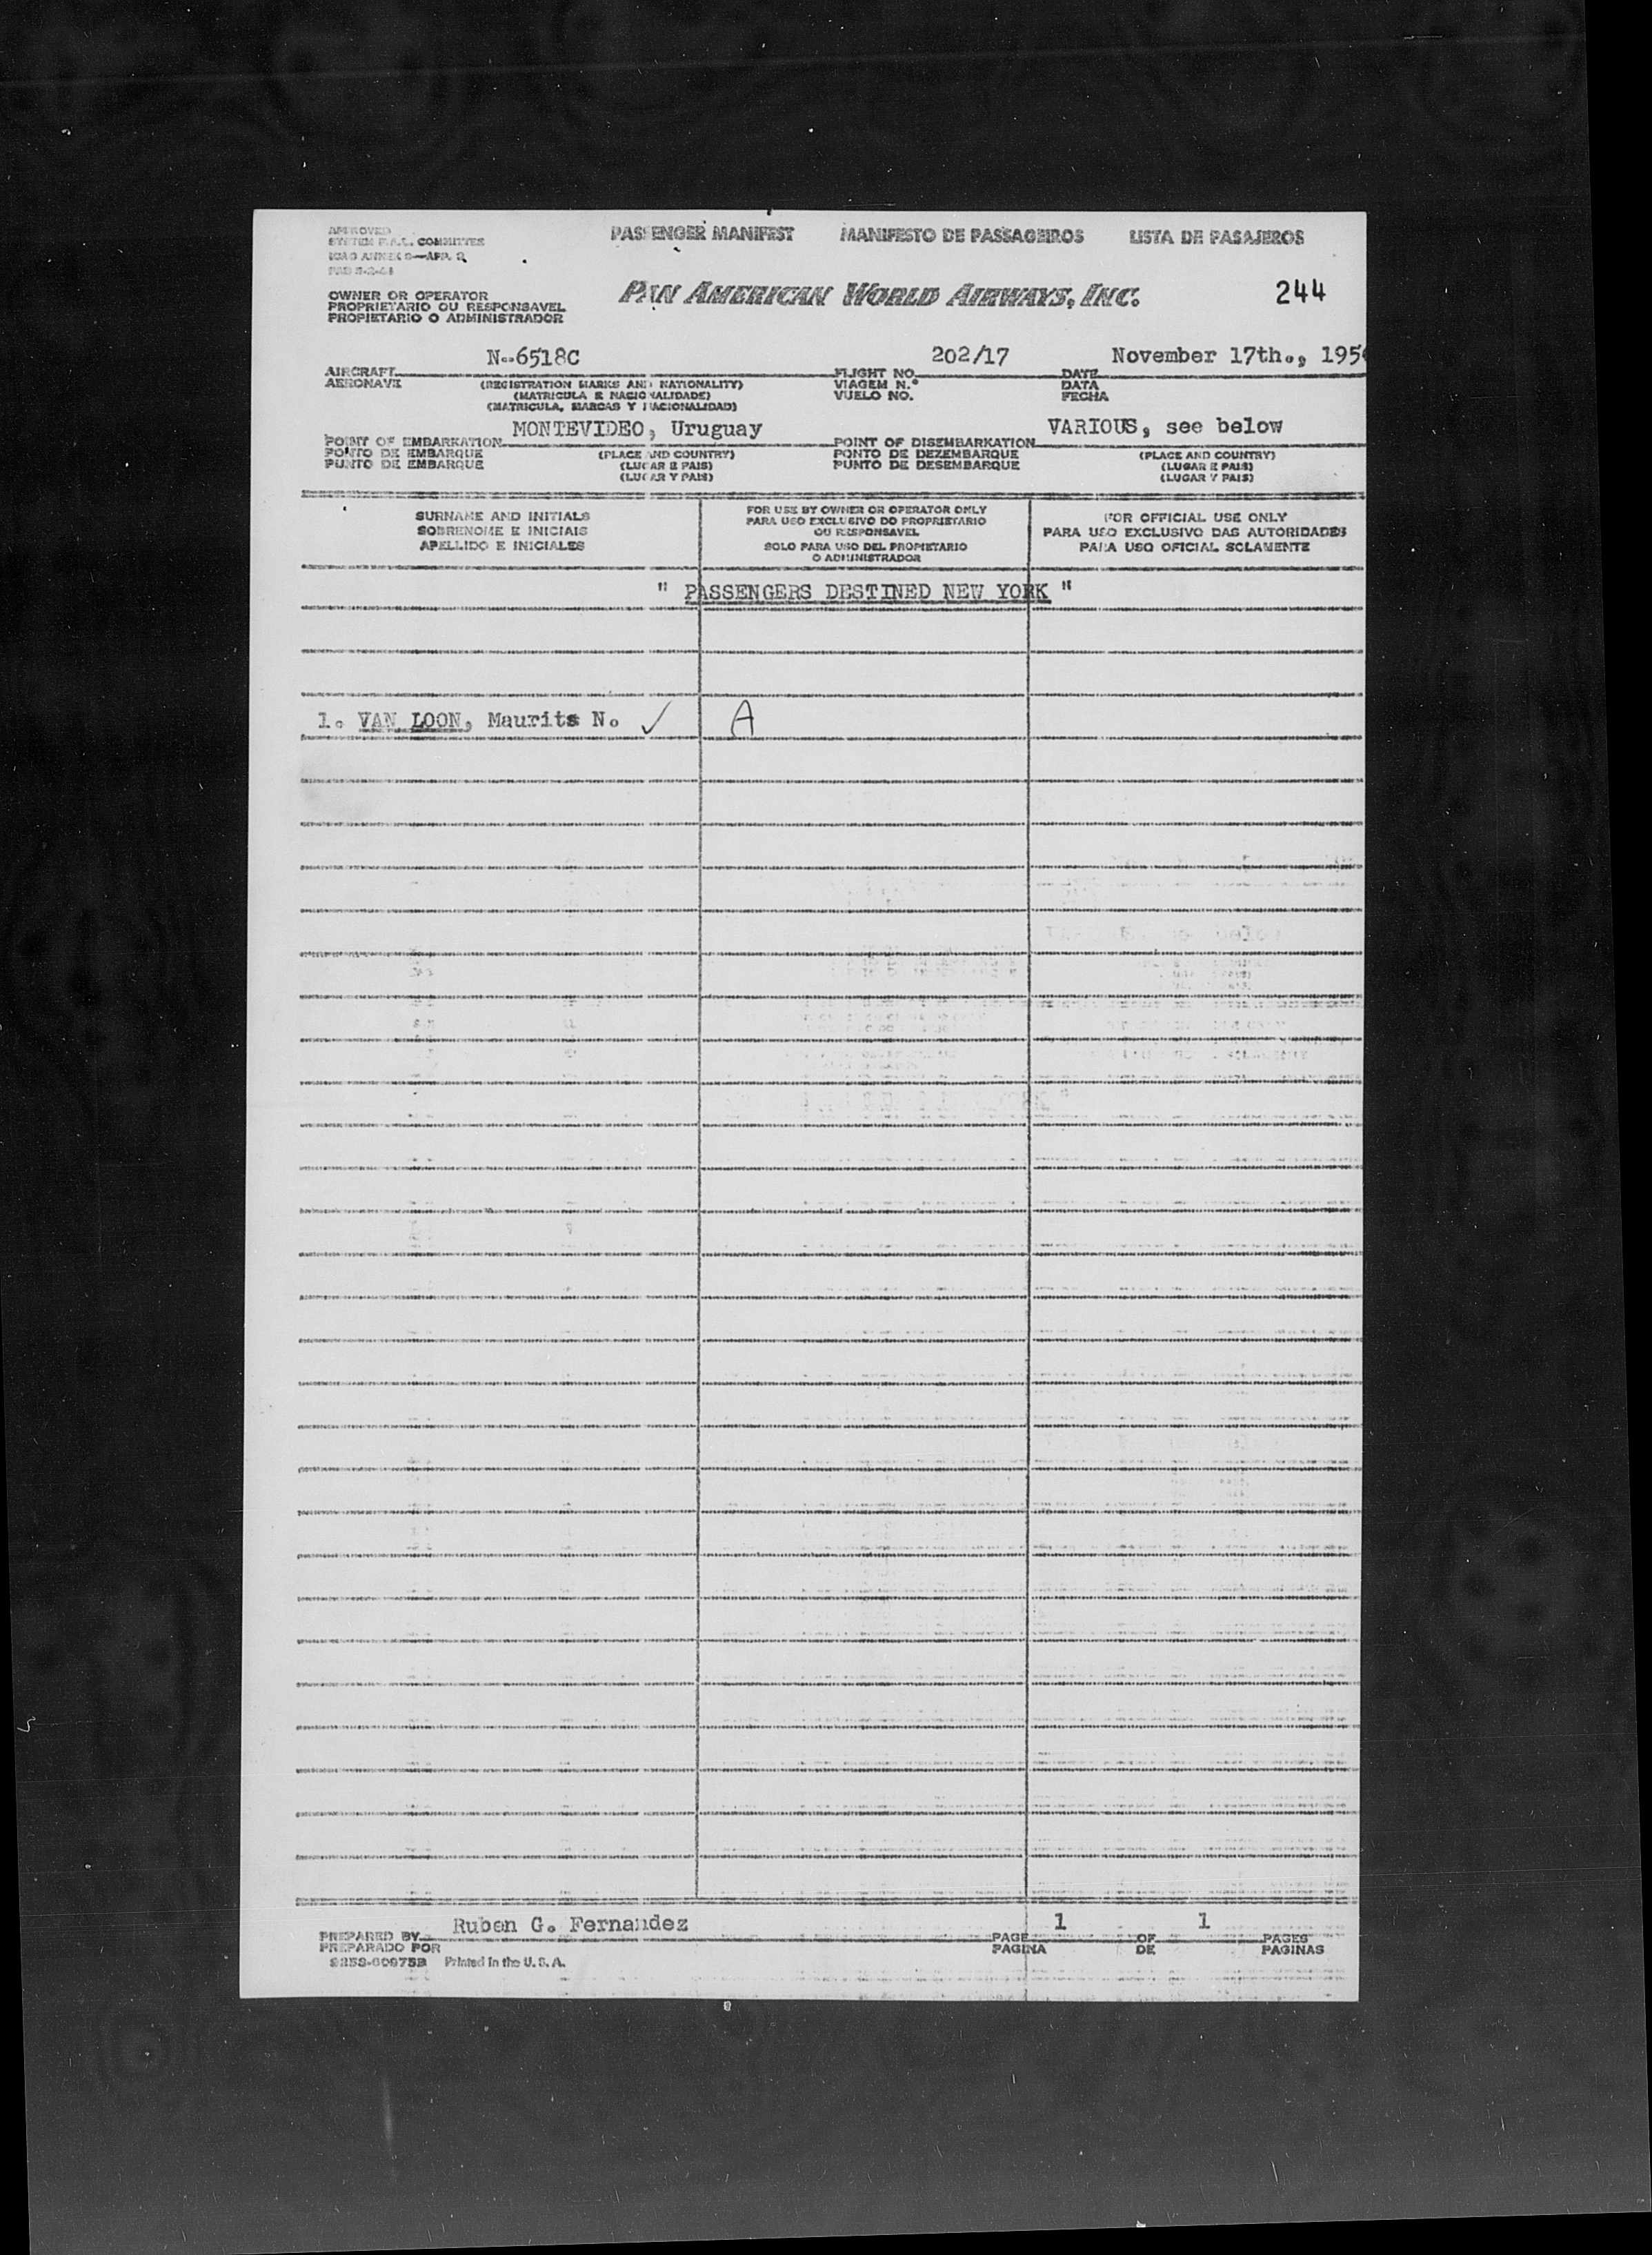 APPROVED
SYSTEM F.A.L. COMMITTEE
ICAO ANNEX 9—APP. 2
PASSENGER MANIFEST MANIFESTO DE PASSAGEIROS LISTA DE PASAJEROS
OWNER OR OPERATOR
PROPRIETARIO OU RESPONSAVEL
PROPIETARIO O ADMINISTRADOR
PAN AMERICAN WORLD AIRWAYS, INC.
244
N--6518C 202/17 November 17th., 195
AIRCRAFT FLIGHT NO. DATE
AERONAVE (REGISTRATION MARKS AND NATIONALITY) VIAGEM N.º DATA
(MATRICULA E NACIONALIDADE) VUELO NO. FECHA
(MATRICULA, MARCAS Y NACIONALIDAD)
MONTEVIDEO, Uruguay VARIOUS, see below
POINT OF EMBARKATION POINT OF DISEMBARKATION
PONTO DE EMBARQUE (PLACE AND COUNTRY) PONTO DE DEZEMBARQUE (PLACE AND COUNTRY)
PUNTO DE EMBARQUE (LUGAR E PAIS) PUNTO DE DESEMBARQUE (LUGAR E PAIS)
(LUGAR Y PAIS) (LUGAR Y PAIS)
SURNAME AND INITIALS
SOBRENOME E INICIAIS
APELLIDO E INICIALES
FOR USE BY OWNER OR OPERATOR ONLY
PARA USO EXCLUSIVO DO PROPRIETARIO
OU RESPONSAVEL
SOLO PARA USO DEL PROPIETARIO
O ADMINISTRADOR
FOR OFFICIAL USE ONLY
PARA USO EXCLUSIVO DAS AUTORIDADES
PARA USO OFICIAL SOLAMENTE
" PASSENGERS DESTINED NEW YORK "
1. VAN LOON, Maurits N. ✓ A
Ruben G. Fernandez 1 1
PREPARED BY PAGE OF PAGES
PREPARADO POR PAGINA DE PAGINAS
Printed in the U.S.A.